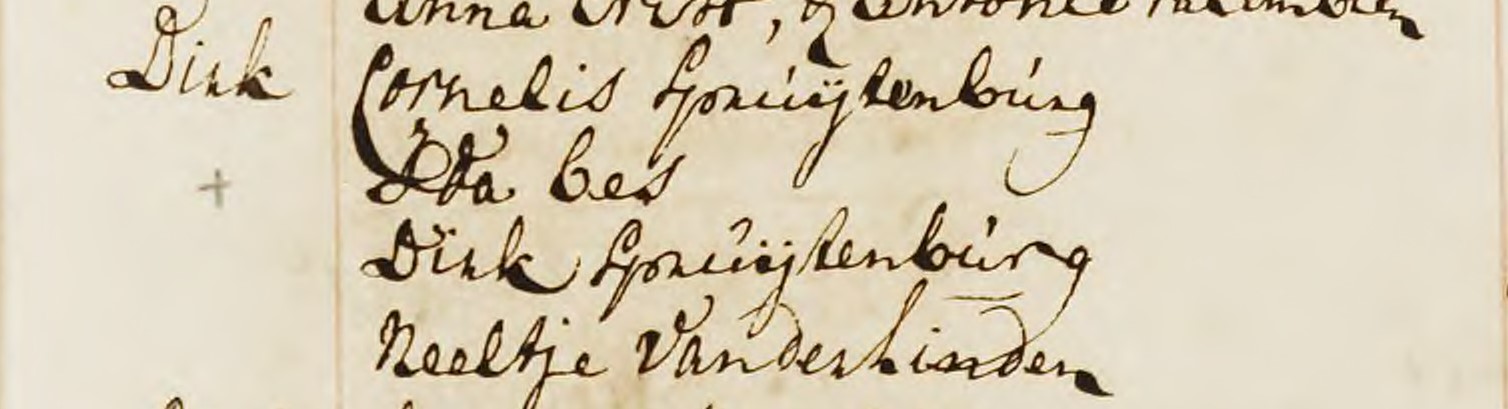 Anna
Dirk
Cornelis Spruijtenburg
Ida bes
Dirk Spruijtenburg
Neeltje Vanderlinden